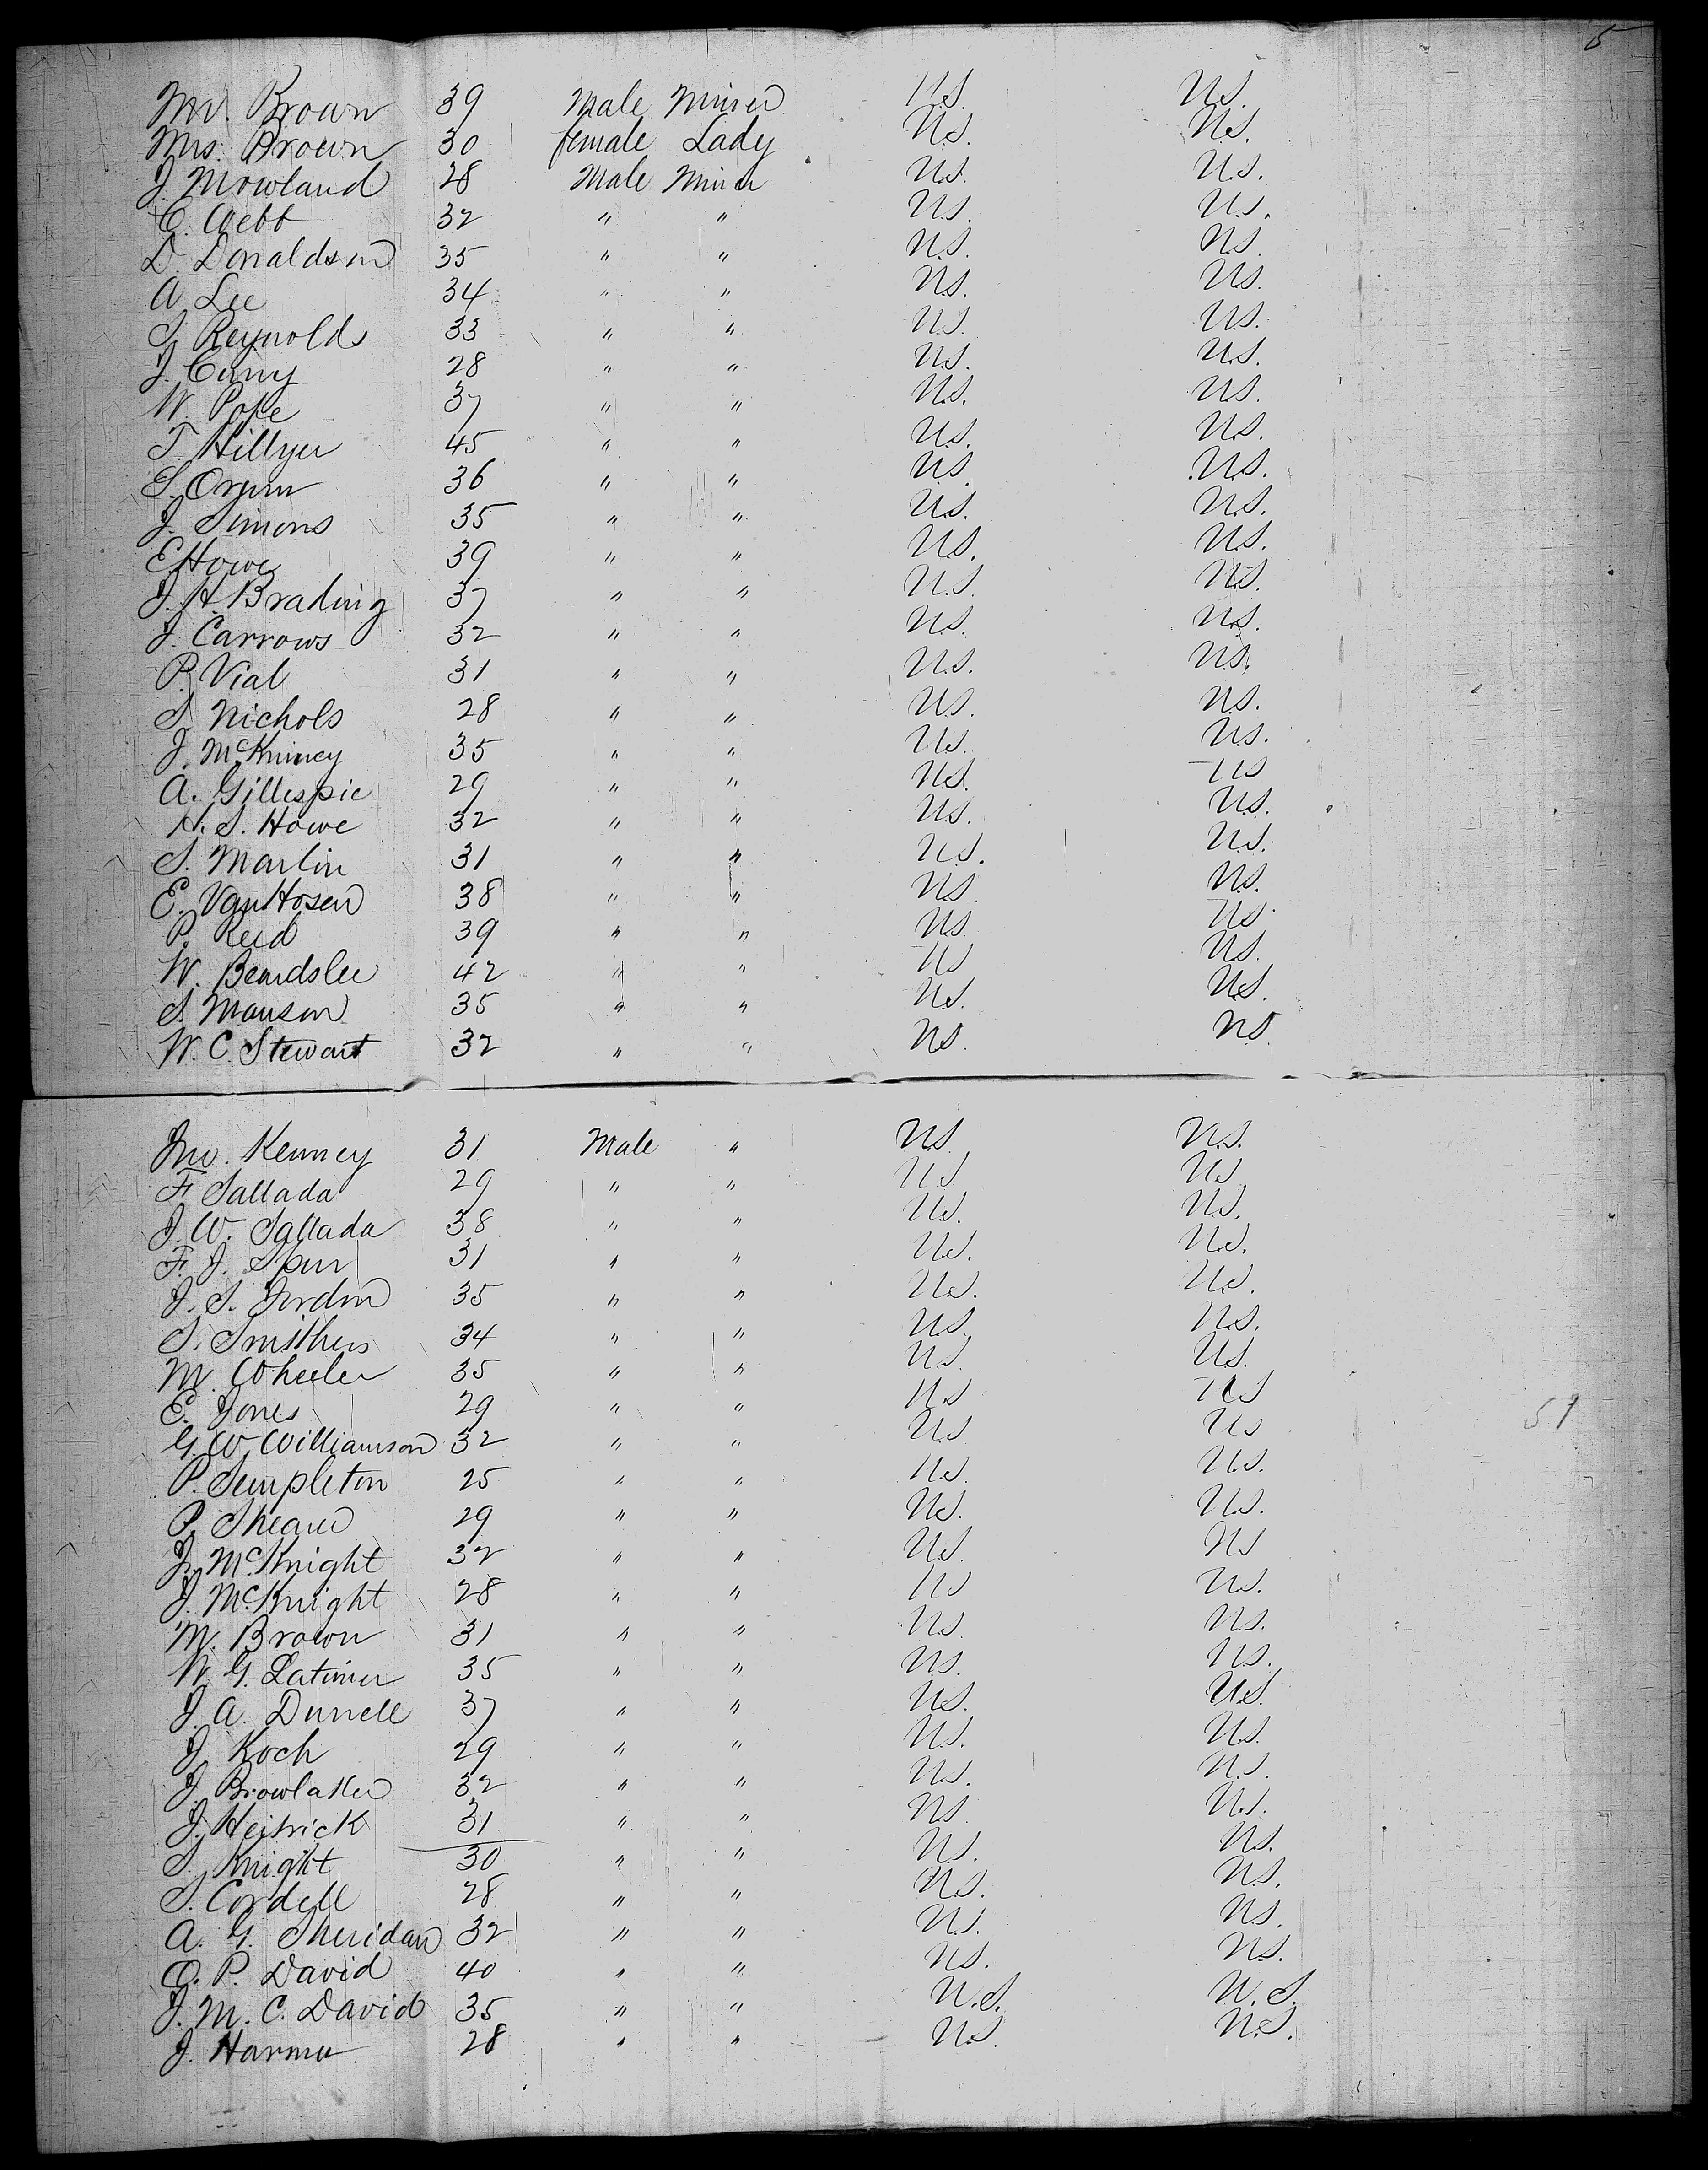 5
Mr. Brown 39 Male Miner U.S. U.S.
Mrs. Brown 30 female Lady U.S. U.S.
J. Mowland 28 Male Miner U.S. U.S.
C. Webb 32 " " U.S. U.S.
D. Donaldson 35 " " U.S. U.S.
A. Lee 34 " " U.S. U.S.
S. Reynolds 33 " " U.S. U.S.
J. Curry 28 " " U.S. U.S.
W. Pope 37 " " U.S. U.S.
T. Hillyer 45 " " U.S. U.S.
S. Orum 36 " " U.S. U.S.
J. Simons 35 " " U.S. U.S.
E Howe 39 " " U.S. U.S.
J. H. Brading 37 " " U.S. U.S.
J. Carrows 32 " " U.S. U.S.
P. Vial 31 " " U.S. U.S.
S. Nichols 28 " " U.S. U.S.
J. McKinney 35 " " U.S. U.S.
A. Gillespie 29 " " U.S. U.S
H. S. Howe 32 " " U.S. U.S.
S. Martin 31 " " U.S. U.S.
E. VanHosen 38 " " U.S U.S.
P. Reid 39 " " U.S. U.S.
W. Beardslee 42 " " U.S U.S.
S. Manson 35 " " U.S. U.S.
W. C. Stewart 32 " " U.S. U.S.
Jno. Kenney 31 Male " U.S. U.S.
F. Sallada 29 " " U.S U.S
J. W. Sallada 38 " " U.S. U.S.
F. J. Spur 31 " " U.S. U.S.
J. S. Jordon 35 " " U.S. U.S.
S. Smithers 34 " " U.S. U.S.
M. Wheeler 35 " " U.S. U.S.
E. Jones 29 " " U.S U.S
G. W. Williamson 32 " " U.S U.S
51
P. Sempleton 25 " " U.S U.S.
P. Shearer 29 " " U.S. U.S.
J. McKnight 32 " " U.S. U.S
J. McKnight 28 " " U.S U.S.
M. Brown 31 " " U.S. U.S.
W. G. Latimer 35 " " U.S. U.S.
J. A. Durrell 37 " " U.S. U.S.
J. Koch 29 " " U.S. U.S.
J. 32 " " U.S. U.S.
J. Hetrick 31 " " U.S U.S.
S. Knight 30 " " U.S. U.S.
S. Cordell 28 " " U.S. U.S.
A. G. Sheridan 32 " " U.S. U.S.
O. P. David 40 " " U.S. U.S.
J. M. C. David 35 " " U.S. U.S.
J. Harmer 28 " " U.S. U.S.